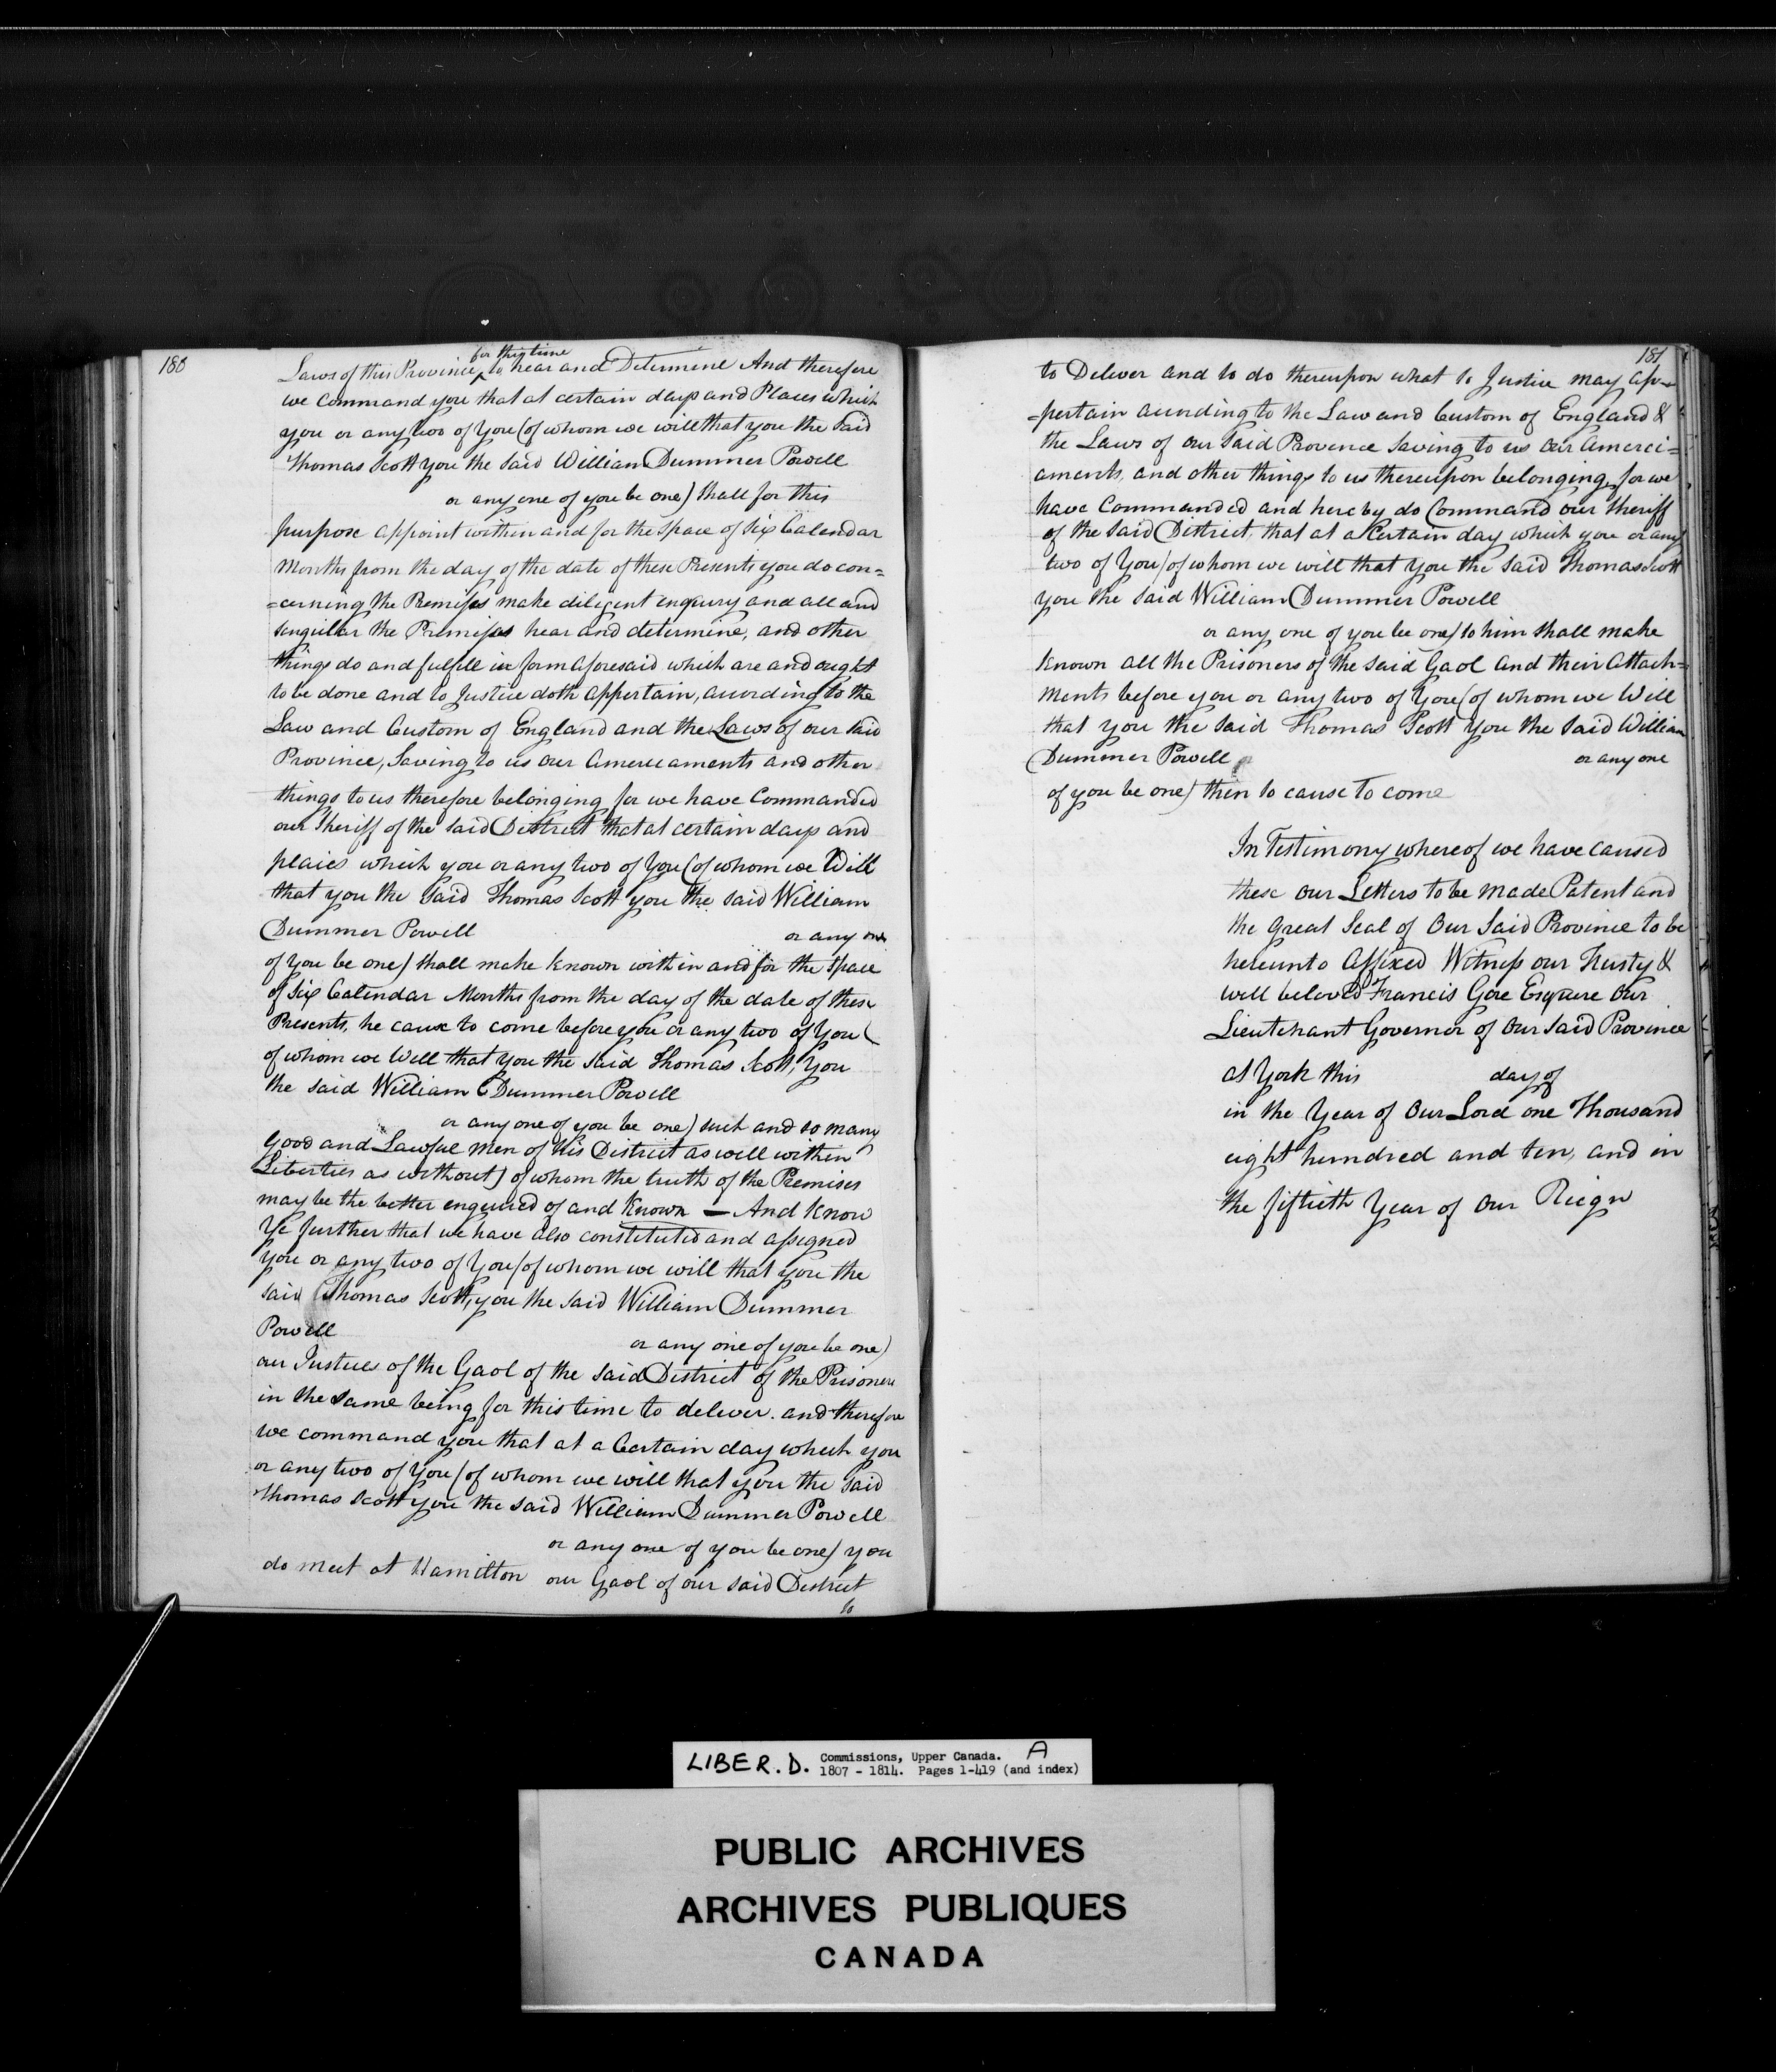 180
Laws of this Province for this time to hear and Determine And therefore
we Command you that at certain days and Places which
you or any two of you (of whom we will that you the Said
Thomas Scott you the Said William Dummer Powell
or any one of you be one) shall for this
purpose appoint within and for the space of Six Calendar
Months from the day of the date of these Presents you do con=
=cerning the Premises make diligent enquiry and all and
singular the Premises hear and determine, and other
things do and fulfill in form aforesaid which are and ought
to be done and to Justice doth appertain, according to the
Law and Custom of England and the Laws of our said
Province, Saving to us our Amerciaments and other
things to us therefore belonging for we have Commanded
our Sheriff of the said District that at certain days and
places which you or any two of You (of whom we Will
that you the Said Thomas Scott you the said William
Dummer Powell or any one
of you be one) shall make known within and for the space
of Six Calendar Months from the day of the date of these
Presents, he cause to come before you or any two of You (
of whom we Will that you the said Thomas Scott, You
the said William Dummer Powell
or any one of you be one) such and so many
good and Lawful men of his District as well within
Liberties as without) of whom the truth of the Premises
may be the better enquired of and Known — And Know
Ye further that we have also constituted and assigned
you or any two of You (of whom we will that you the
said Thomas Scott, you the said William Dummer
Powell
or any one of you be one)
our Justices of the Gaol of the said District of the Prisoners
in the same being for this time to deliver. and therefore
we command you that at a Certain day which you
or any two of You (of whom we will that you the Said
Thomas Scott you the said William Dummer Powell
or any one of you be one) you
do meet at Hamilton our Gaol of our said District
to
181
to Deliver and to do thereupon what to Justice may ap=
=pertain according to the Law and Custom of England &
the Laws of our said Provence Saving to us our Amerci=
aments, and other things to us thereupon belonging, for we
have Commanded and here by do Command our Sheriff
of the Said District, that at a Certain day which you or any
two of You (of whom we will that You the Said Thomas Scott
you the said William Dummer Powell
or any one of you be one) to him shall make
known all the Prisoners of the said Gaol and their Attach=
ments before you or any two of You (of whom we Will
that you the said Thomas Scott You the said William
Dummer Powell or any one
of you be one) then to cause to come
In Testimony whereof we have caused
these our Letters to be made Patent and
the Great Seal of Our Said Province to be
hereunto Affixed Witness our Trusty &
well beloved Francis Gore Esquire Our
Lieutenant Governor of Our said Province
at York this day of
in the Year of Our Lord one Thousand
eight hundred and ten, and in
the fiftieth Year of Our Reign
LIBER. D. Commissions, Upper Canada. A
1807 - 1814. Pages 1-419 (and index)
PUBLIC ARCHIVES
ARCHIVES PUBLIQUES
CANADA